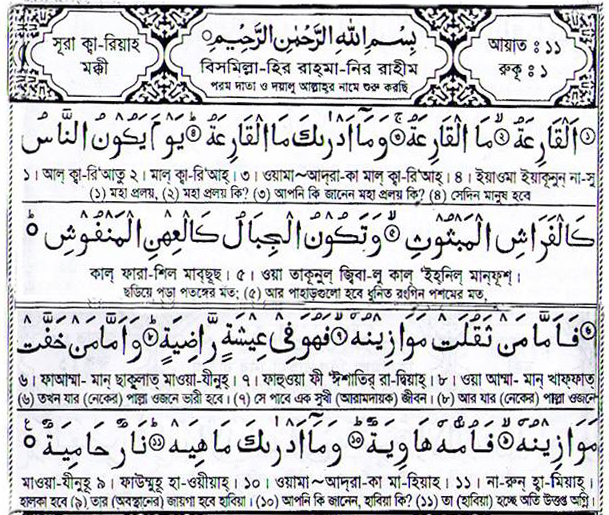 সূরা ক্বা-রিয়াহ্
মক্কী
بِسْمِ اللهِ الرَّحْمٰنِ الرَّحِيْمِ
বিসমিল্লা-হির রাহ়মা-নির রাহীম
পরম দাতা ও দয়ালু আল্লাহর নামে শুরু করছি
আয়াত : ১১
রুকূ : ১
اَلْقَارِعَةُ مَا الْقَارِعَةُ وَمَآ اَدْرٰىكَ مَا الْقَارِعَةُ يَوْمَ يَكُوْنُ النَّاسُ
১। আল্ ক্বা-রি'আতু ২। মাল্ ক্বা-রি'আহ্। ৩। ওয়ামা~আদ্‌রা-কা মাল্ ক্বা-রি'আহ্। ৪। ইয়াওমা ইয়াকূনুন্ না-সু
(১) মহা প্রলয়, (২) মহা প্রলয় কি? (৩) আপনি কি জানেন মহা প্রলয় কি? (৪) সেদিন মানুষ হবে
كَالْفَرَاشِ الْمَبْثُوْثِ وَتَكُوْنُ الْجِبَالُ كَالْعِهْنِ الْمَنْفُوْشِ
কাল্ ফারা-শিল মাব্‌ছূছ্। ৫। ওয়া তাকূনুল্ জ্বিবা-লু কাল্ 'ইহ্‌নিল মান্‌ফূশ্।
ছড়িয়ে পড়া পতঙ্গের মত; (৫) আর পাহাড়গুলো হবে ধুনিত রংগিন পশমের মত,
فَاَمَّا مَنْ ثَقُلَتْ مَوَازِيْنُهٗ فَهُوَ فِيْ عِيْشَةٍ رَّاضِيَةٍ وَاَمَّا مَنْ خَفَّتْ
৬। ফাআম্মা- মান্ ছাকুলাত্ মাওয়া-যীনুহূ। ৭। ফাহুওয়া ফী 'ঈশাতির্ রা-দ্বিয়াহ্। ৮। ওয়া আম্মা- মান্ খাফ্‌ফাত্
(৬) তখন যার (নেকের) পাল্লা ওজনে ভারী হবে। (৭) সে পাবে এক সুখী (আরামদায়ক) জীবন। (৮) আর যার (নেকের) পাল্লা ওজনে
مَوَازِيْنُهٗ فَاُمُّهٗ هَاوِيَةٌ وَمَآ اَدْرٰىكَ مَاهِيَهْ نَارٌ حَامِيَةٌ
মাওয়া-যীনুহূ ৯। ফাউম্মুহূ হা-ওয়ীয়াহ্। ১০। ওয়ামা~আদ্‌রা-কা মা-হিয়াহ্। ১১। না-রুন্ হা-মিয়াহ্।
হালকা হবে (৯) তার (অবস্থানের) জায়গা হবে হাবিয়া। (১০) আপনি কি জানেন, হাবিয়া কি? (১১) তা (হাবিয়া) হচ্ছে অতি উত্তপ্ত অগ্নি।